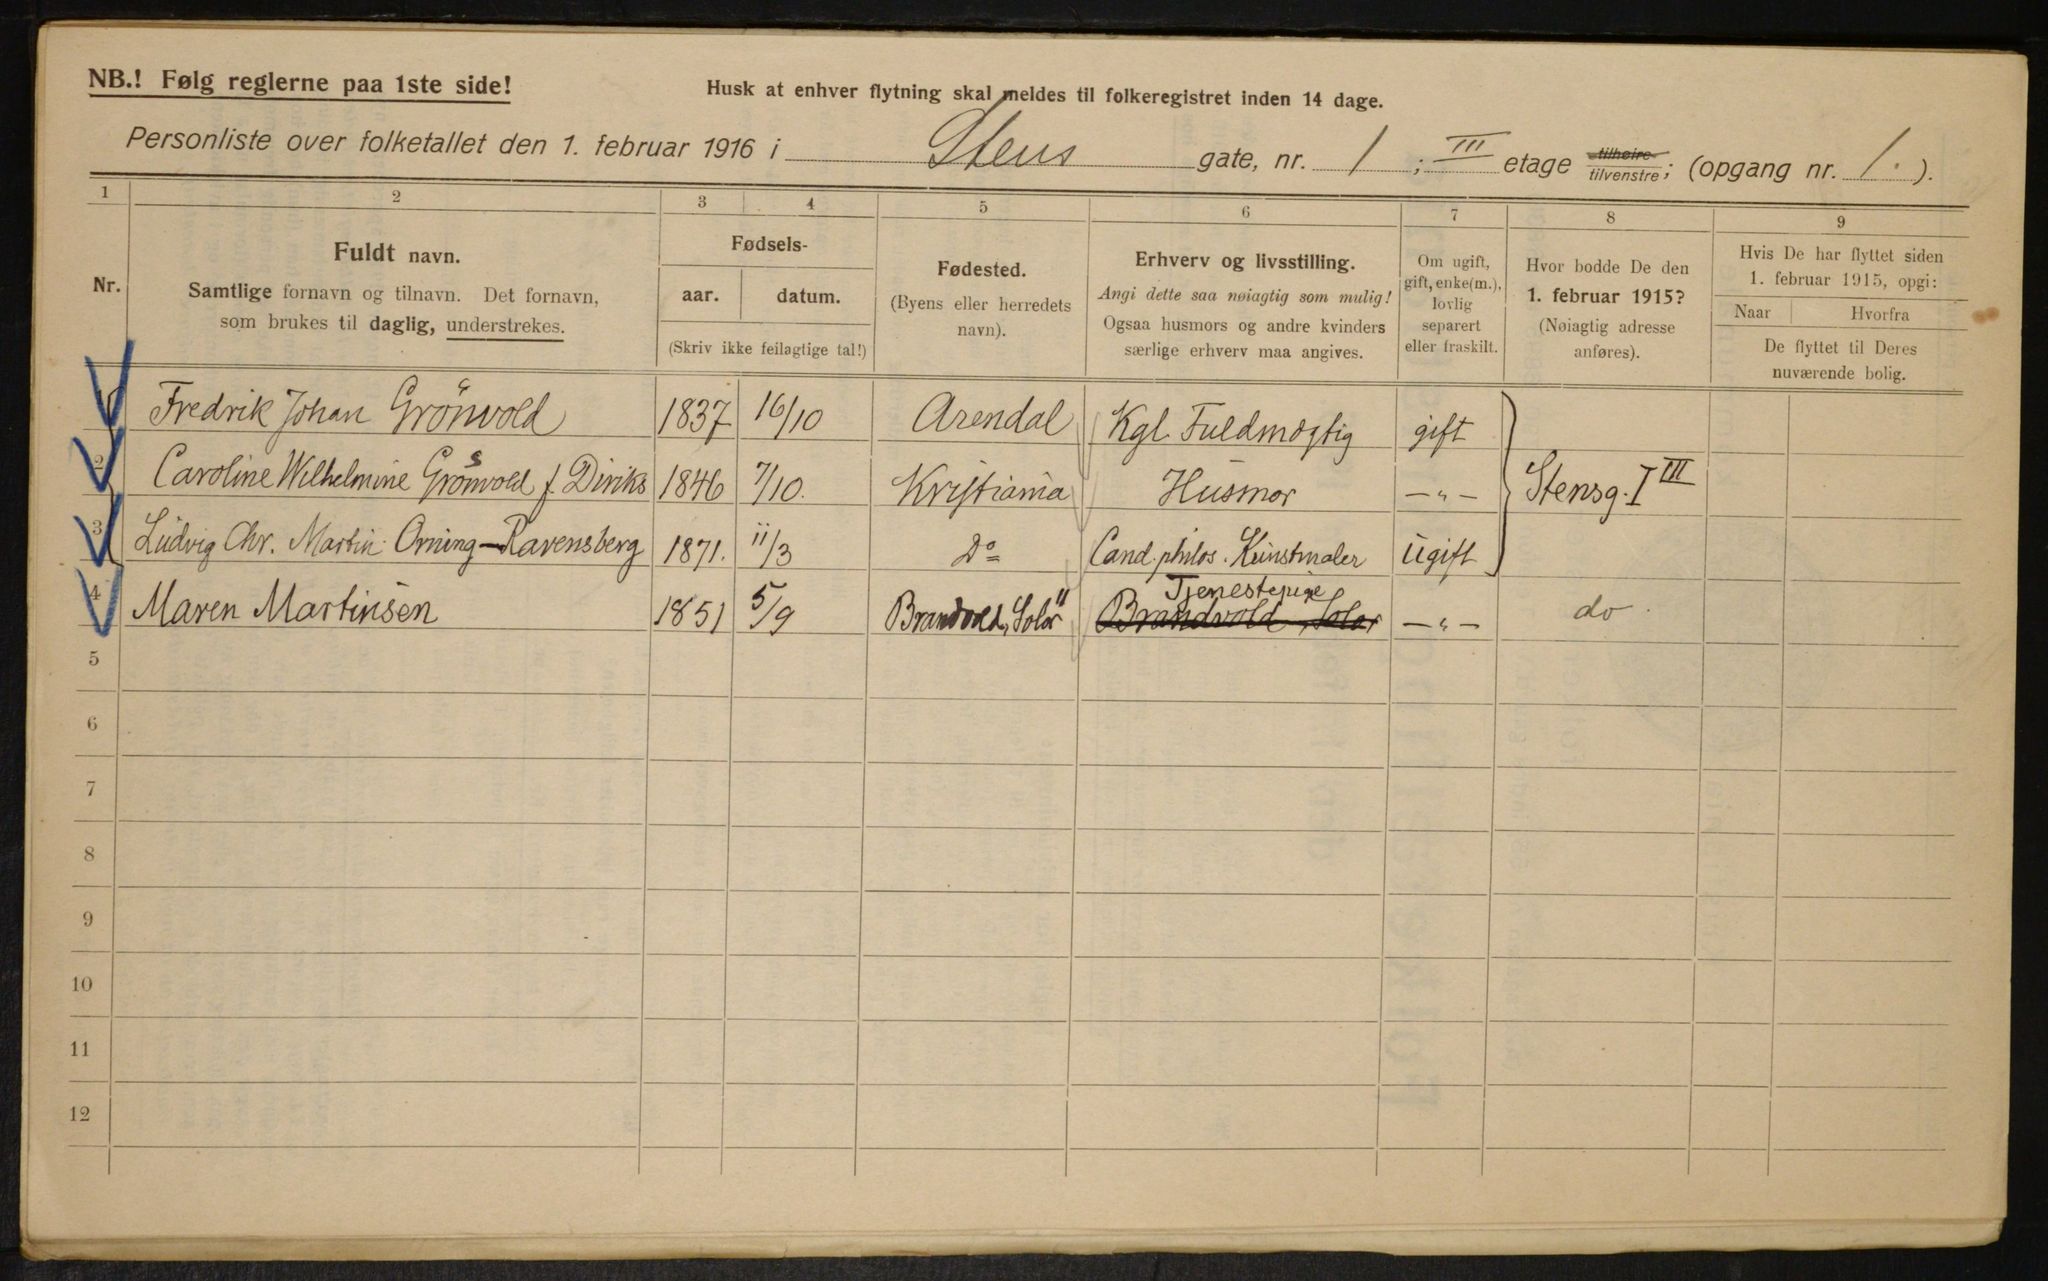 NB.! Følg reglerne paa 1ste side!
Husk at enhver flytning skal meldes til folkeregistret inden 14 dage.
Personliste over folketallet den 1. februar 1916 i Stens gate, nr. 1; III etage tilhøire tilvenstre; (opgang nr. 1.).
1 2 3 4 5 6 7 8 9
Nr.
Fuldt navn.
Samtlige fornavn og tilnavn. Det fornavn,
som brukes til daglig, understrekes.
Fødsels-
aar. datum.
(Skriv ikke feilagtige tal!)
Fødested.
(Byens eller herredets
navn).
Erhverv og livsstilling.
Angi dette saa nøiagtig som mulig!
Ogsaa husmors og andre kvinders
særlige erhverv maa angives.
Om ugift,
gift, enke(m.),
lovlig
separert
eller fraskilt.
Hvor bodde De den
1. februar 1915?
(Nøiagtig adresse
anføres).
Hvis De har flyttet siden
1. februar 1915, opgi:
Naar Hvorfra
De flyttet til Deres
nuværende bolig.
Fredrik Johan Grönvold 1837 16/10 Arendal Kgl. Fuldmægtig gift
2 Caroline Wilhelmine Grönvold f. Diriks 1846 7/10. Kristiania Husmor —"— Stensg. I III
3 Ludvig Chr. Martin Orning-Ravensberg 1871. 11/3 Do Cand. philos. Kunstmaler Ugift
4 Maren Martinsen 1851 5/9 Brandvold, Solör Tjenestepige Brandvold, Solør —"— do
5
6
7
8
9
10
11
12